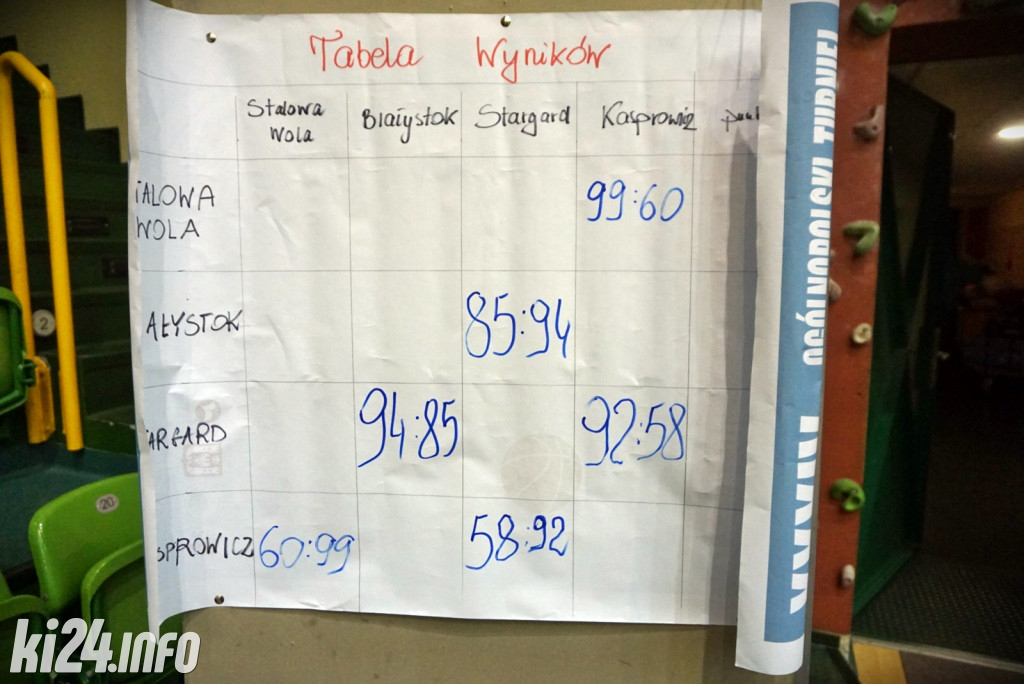 Tabela Wyników
Stalowa
Wola
Białystok
Stargard
Kasprowicz
TALOWA
WOLA
99:60
AŁYSTOK
85:94
ARGARD
94:85
92:58
SPROWICZ
60:99
58:92
OGÓLNOPOLSKI TURNIEJ
2
20
ki24.info